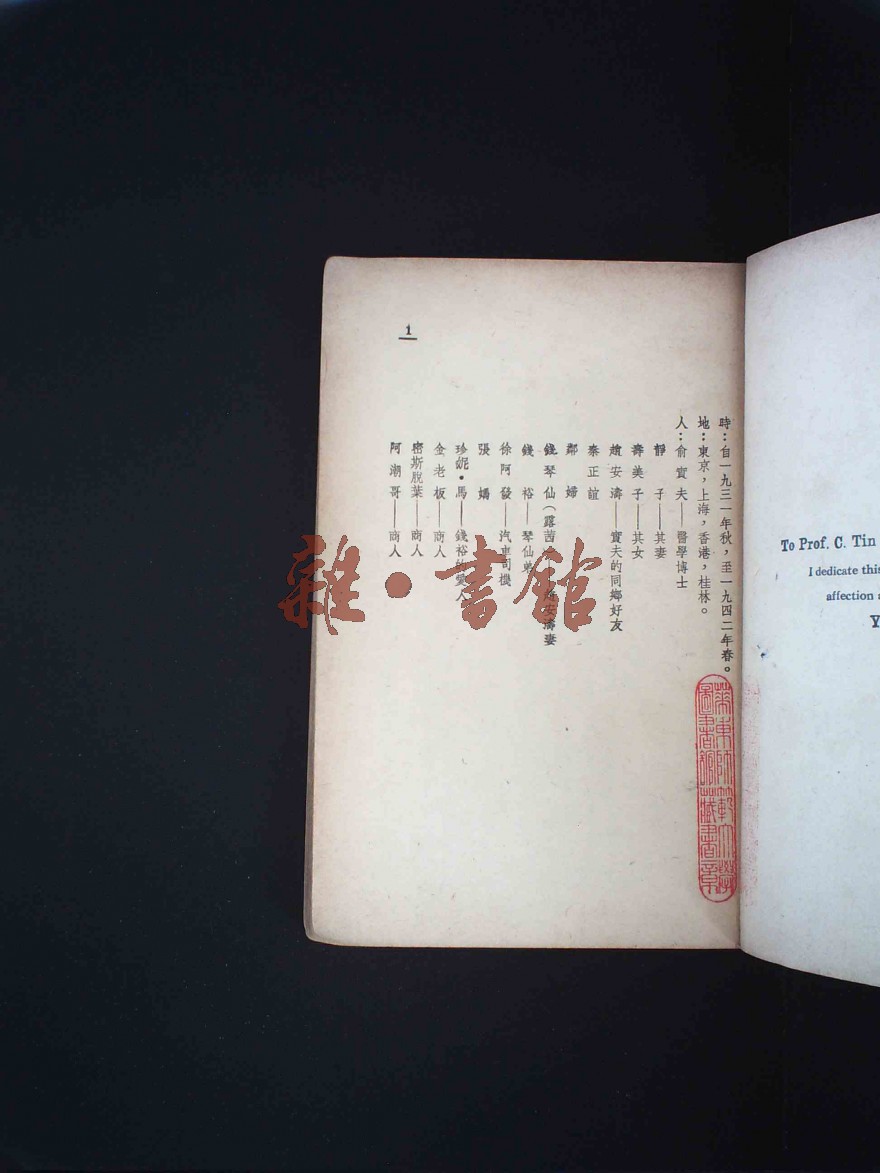 To Prof. C. Tin
I dedicate this
affection a
Y
1
時：自一九三一年秋，至一九四二年春。
地：東京，上海，香港，桂林。
人：俞實夫——醫學博士
靜子——其妻
壽美子——其女
趙安濤——實夫的同鄉好友
秦正誼
鄰婦
錢琴仙（露茜 安濤妻
錢裕——琴仙弟
徐阿發——汽車司機
張媽
珍妮·馬——錢裕的愛人
金老板——商人
密斯脫葉——商人
阿潮哥——商人
雜·書館
華東師範大學
圖書館藏書章